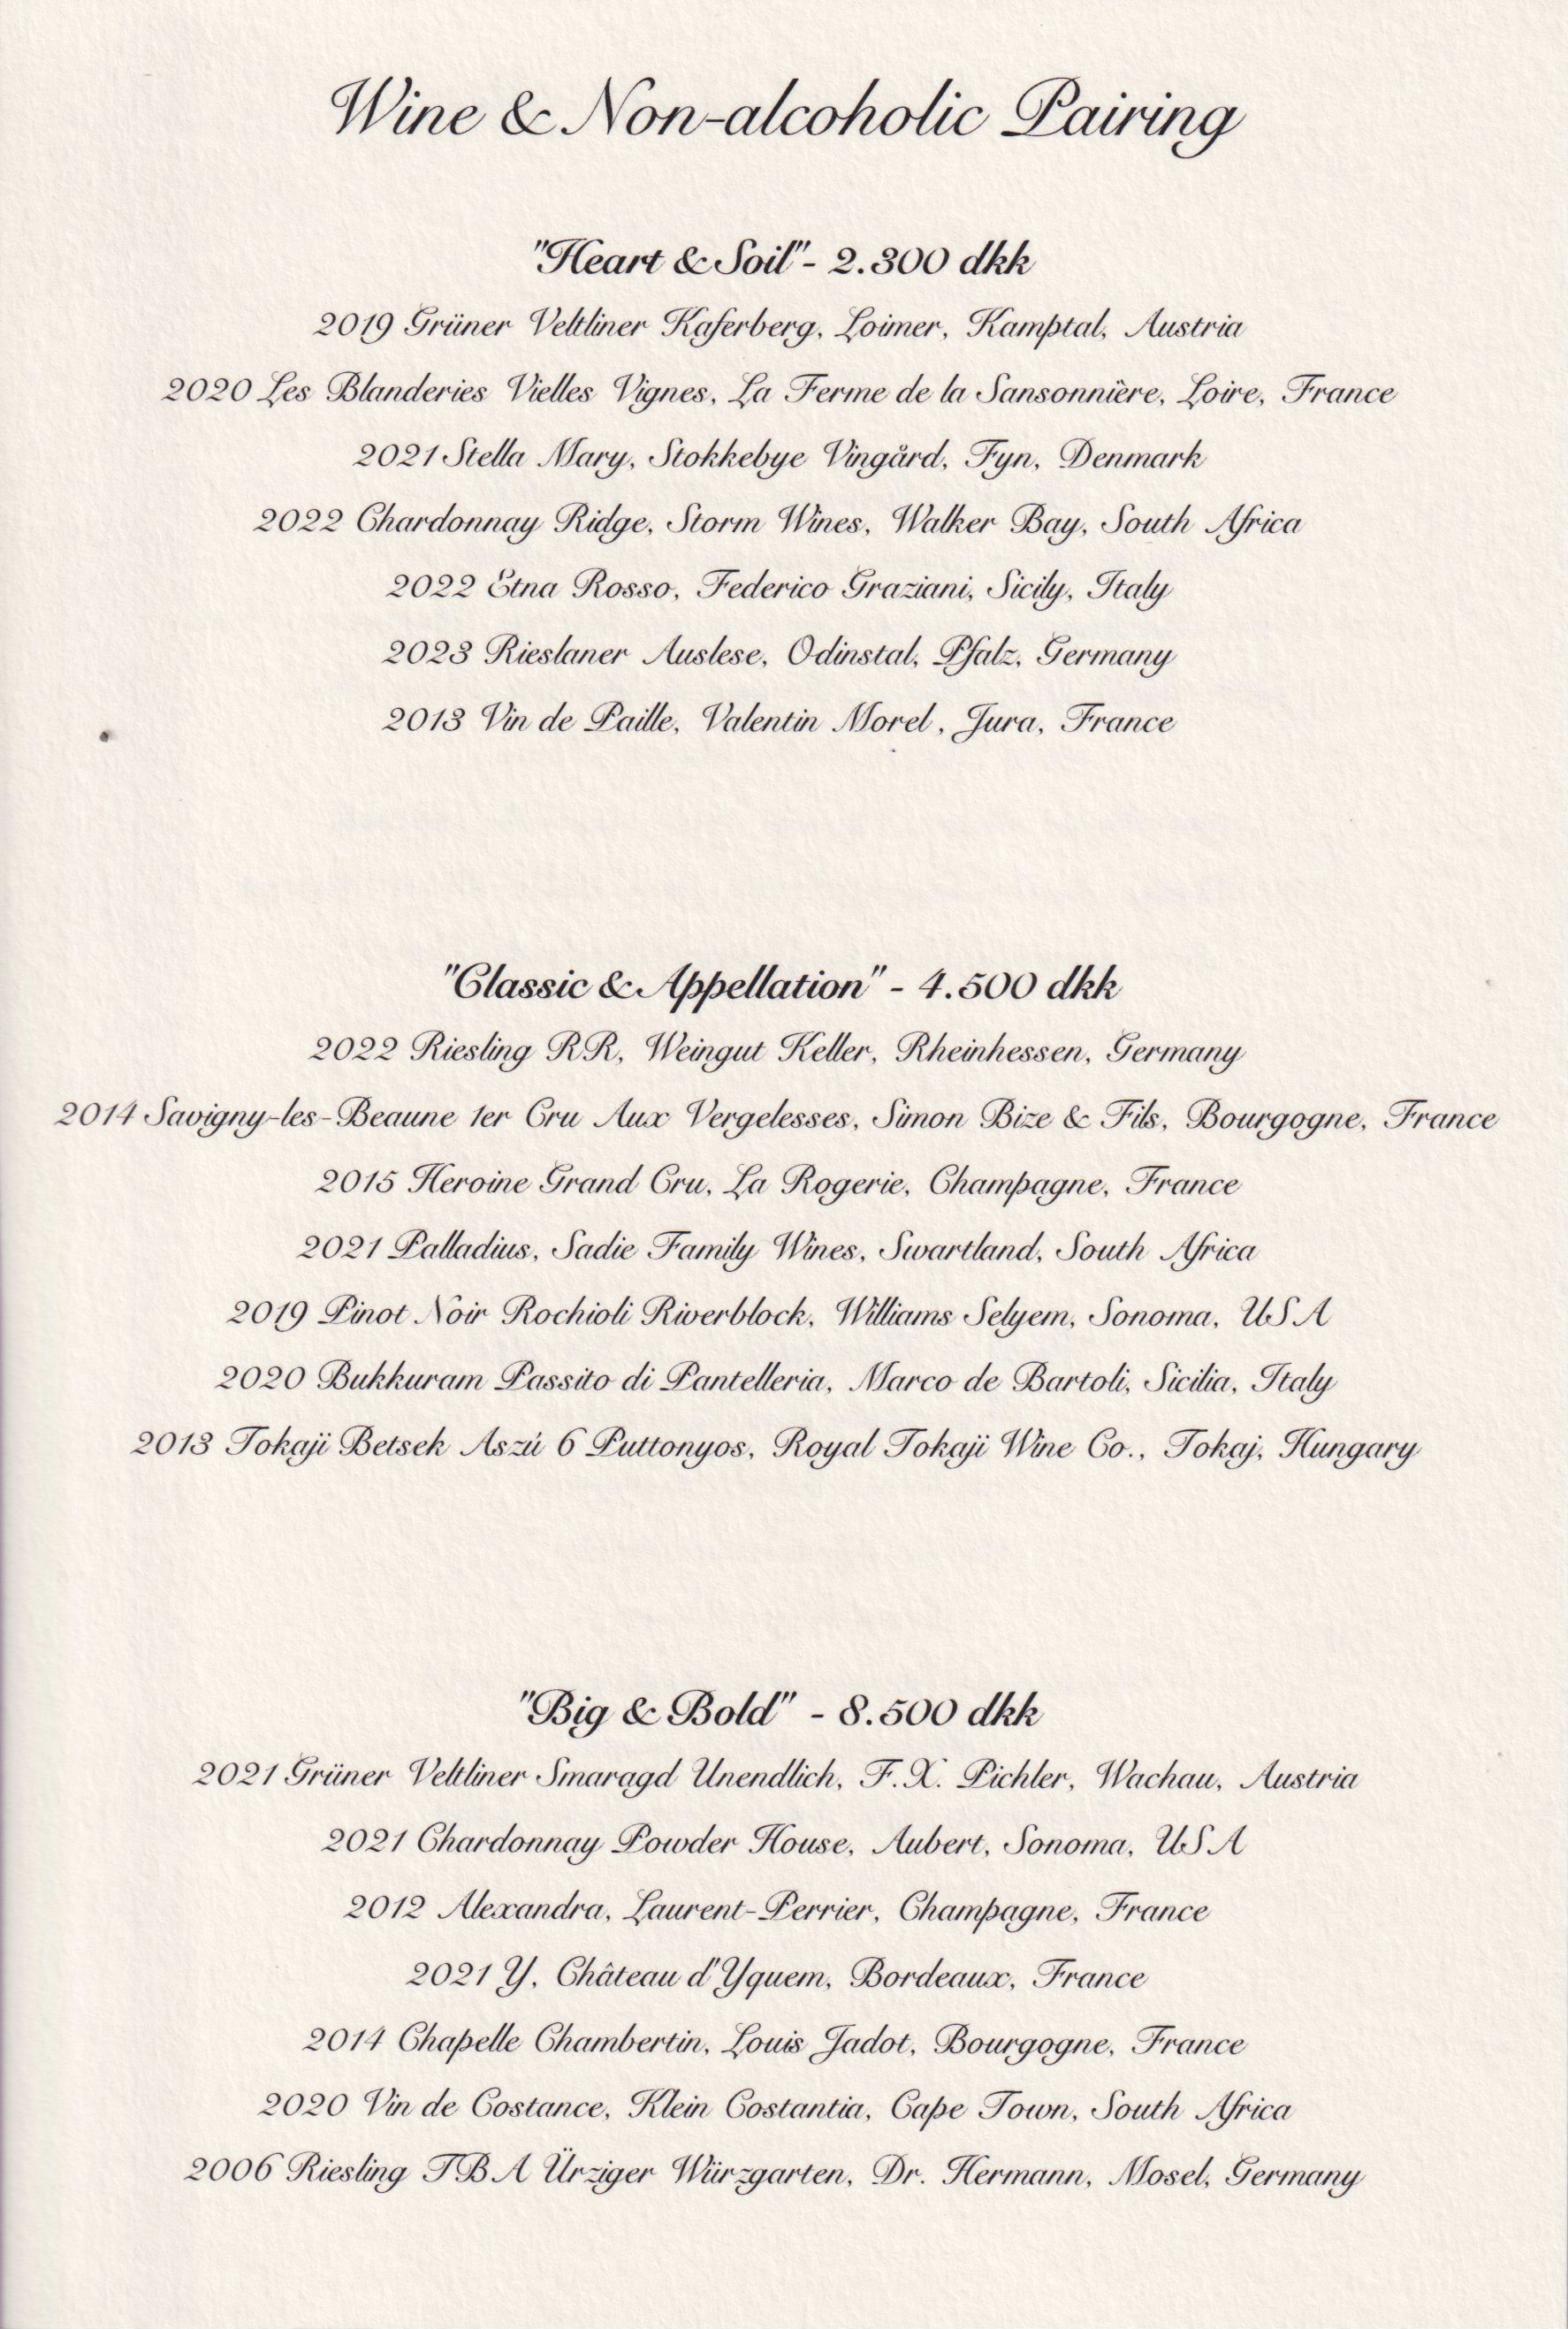 Wine & Non-alcoholic Pairing
"Heart & Soil"- 2.300 dkk
2019 Grüner Veltliner Kaferberg, Loimer, Kamptal, Austria
2020 Les Blanderies Vielles Vignes, La Ferme de la Sansonnière, Loire, France
2021 Stella Mary, Stokkebye Vingård, Fyn, Denmark
2022 Chardonnay Ridge, Storm Wines, Walker Bay, South Africa
2022 Etna Rosso, Federico Graziani, Sicily, Italy
2023 Rieslaner Auslese, Odinstal, Pfalz, Germany
2013 Vin de Paille, Valentin Morel, Jura, France
"Classic & Appellation" - 4.500 dkk
2022 Riesling RR, Weingut Keller, Rheinhessen, Germany
2014 Savigny-les-Beaune 1er Cru Aux Vergelesses, Simon Bize & Fils, Bourgogne, France
2015 Heroine Grand Cru, La Rogerie, Champagne, France
2021 Palladius, Sadie Family Wines, Swartland, South Africa
2019 Pinot Noir Rochioli Riverblock, Williams Selyem, Sonoma, USA
2020 Bukkuram Passito di Pantelleria, Marco de Bartoli, Sicilia, Italy
2013 Tokaji Betsek Aszú 6 Puttonyos, Royal Tokaji Wine Co., Tokaj, Hungary
"Big & Bold" - 8.500 dkk
2021 Grüner Veltliner Smaragd Unendlich, F.X. Pichler, Wachau, Austria
2021 Chardonnay Powder House, Aubert, Sonoma, USA
2012 Alexandra, Laurent-Perrier, Champagne, France
2021 Y, Château d'Yquem, Bordeaux, France
2014 Chapelle Chambertin, Louis Jadot, Bourgogne, France
2020 Vin de Costance, Klein Costantia, Cape Town, South Africa
2006 Riesling TBA Ürziger Würzgarten, Dr. Hermann, Mosel, Germany